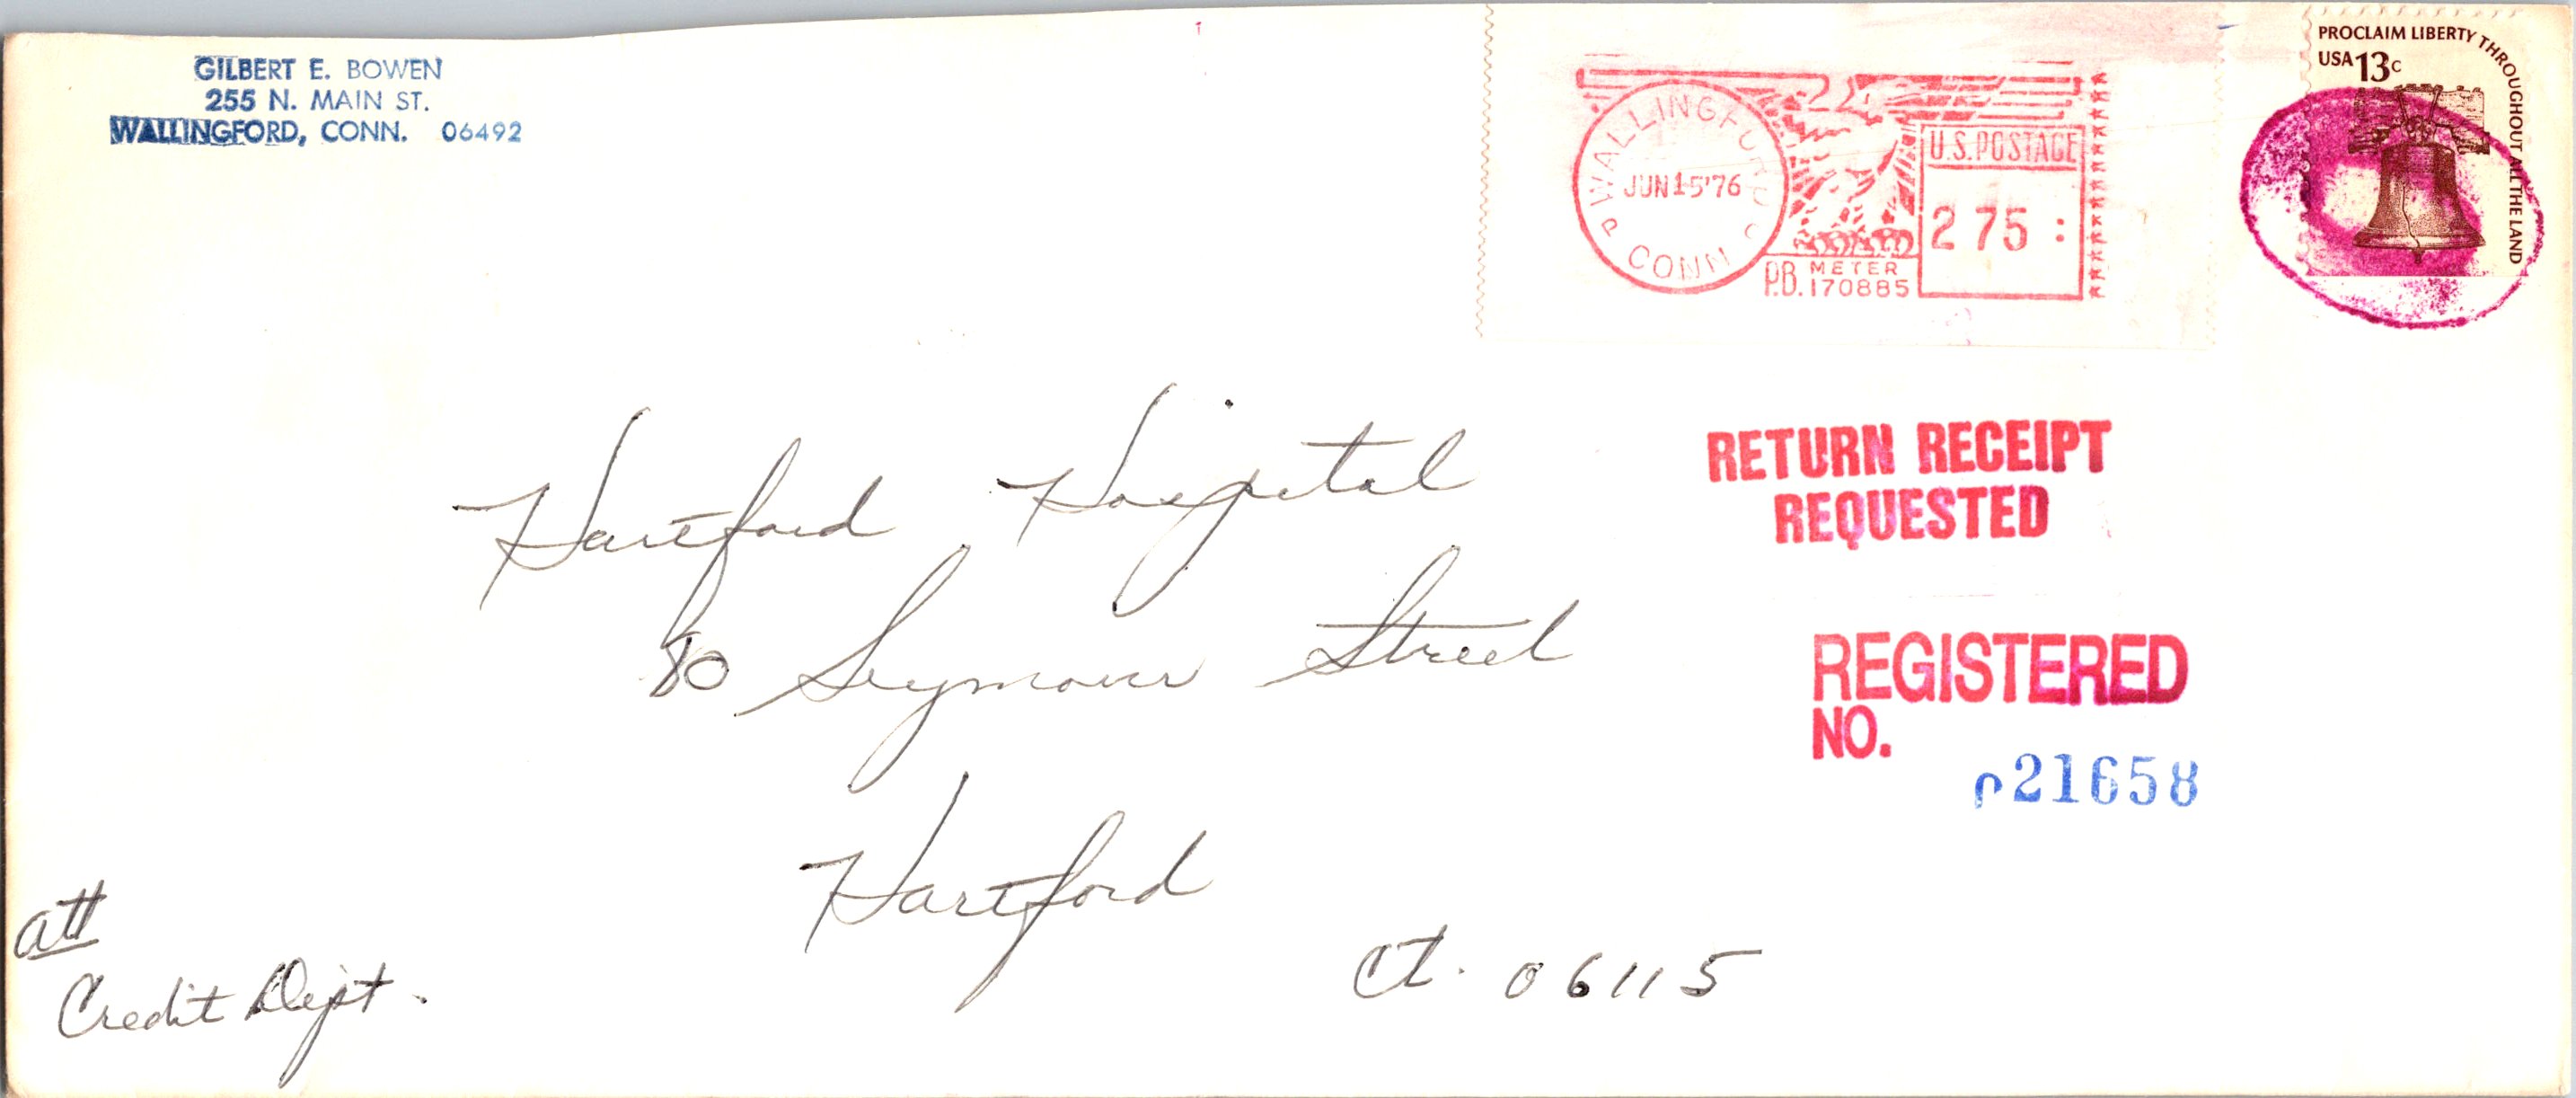 GILBERT E. BOWEN
255 N. MAIN ST.
WALLINGFORD, CONN. 06492
WALLINGFORD
JUN 15 '76
P
C
CONN
U.S. POSTAGE
275:
P.B. METER
170885
PROCLAIM LIBERTY THROUGHOUT ALL THE LAND
USA 13c
RETURN RECEIPT
REQUESTED
Hartford Hospital
80 Seymour Street
Hartford
Ct. 06115
REGISTERED
NO.
21658
att
Credit Dept.